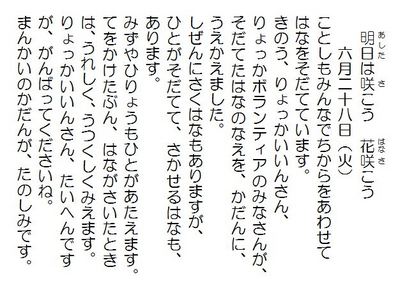 明日は咲こう　花咲こう
六月二十八日（火）
ことしもみんなでちからをあわせて
はなをそだてています。
きのう、りょっかいいんさん、
りょっかボランティアのみなさんが、
そだてたはなのなえを、かだんに、
うえかえました。
しぜんにさくはなもありますが、
ひとがそだてて、さかせるはなも、
あります。
みずやひりょうもひとがあたえます。
てをかけたぶん、はながさいたとき
は、うれしく、うつくしくみえます。
りょっかいいんさん、たいへんです
が、がんばってくださいね。
まんかいのかだんが、たのしみです。